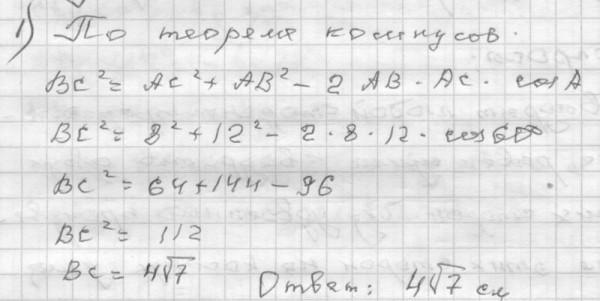 1) По теореме косинусов.
BC² = AC² + AB² - 2 AB · AC · cos A
BC² = 8² + 12² - 2 · 8 · 12 · cos 60°
BC² = 64 + 144 - 96
BC² = 112
BC = 4√7 Ответ: 4√7 см